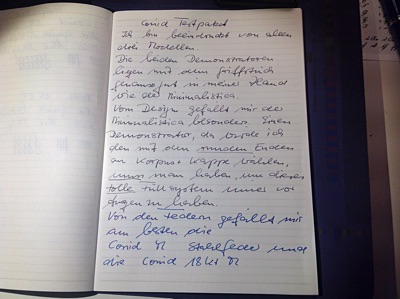 Conid Testpaket
Ich bin beeindruckt von allen
drei Modellen.
Die beiden Demonstratoren
liegen mit dem Griffstück
genauso gut in meiner Hand
wie der Minimalistica.
Vom Design gefällt mir der
Minimalistica besonders. Einen
Demonstrator, da würde ich
den mit den runden Enden
an Korpus + Kappe wählen,
muss man haben, um dieses
tolle Füllsystem immer vor
Augen zu haben.
Von den Federn gefällt mir
am besten die
Conid M Stahlfeder und
die Conid 18kt M